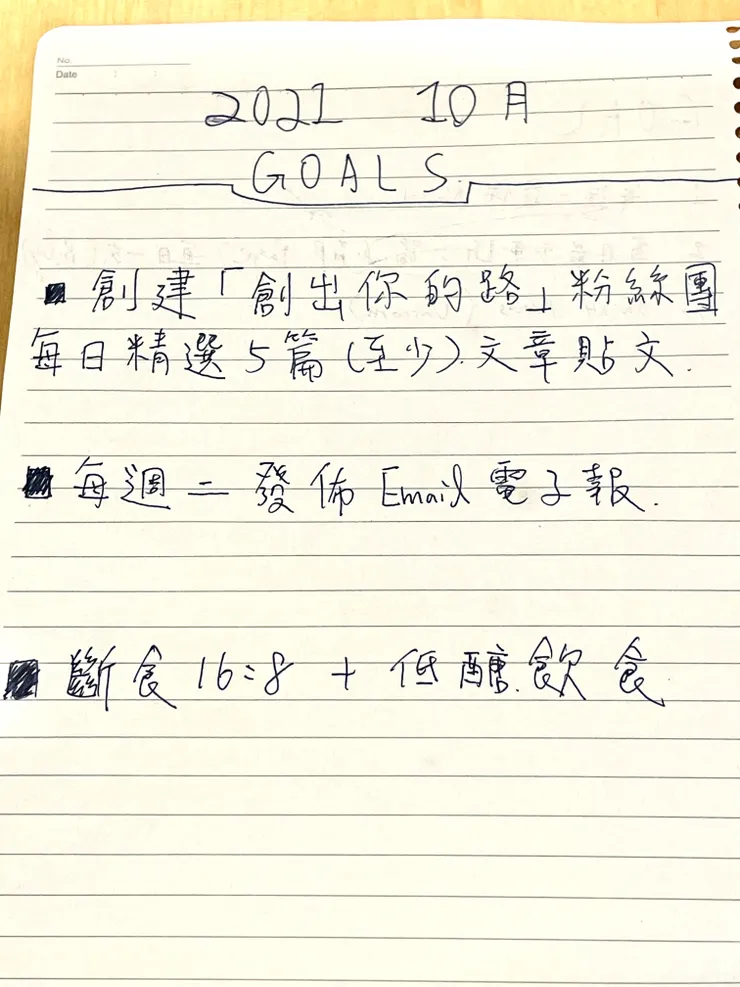 No.
Date
2021 10月
GOALS.
創建「創出你的路」粉絲團
每日精選5篇(至少).文章貼文.
每週二發佈Email電子報.
斷食16:8 + 低醣飲食